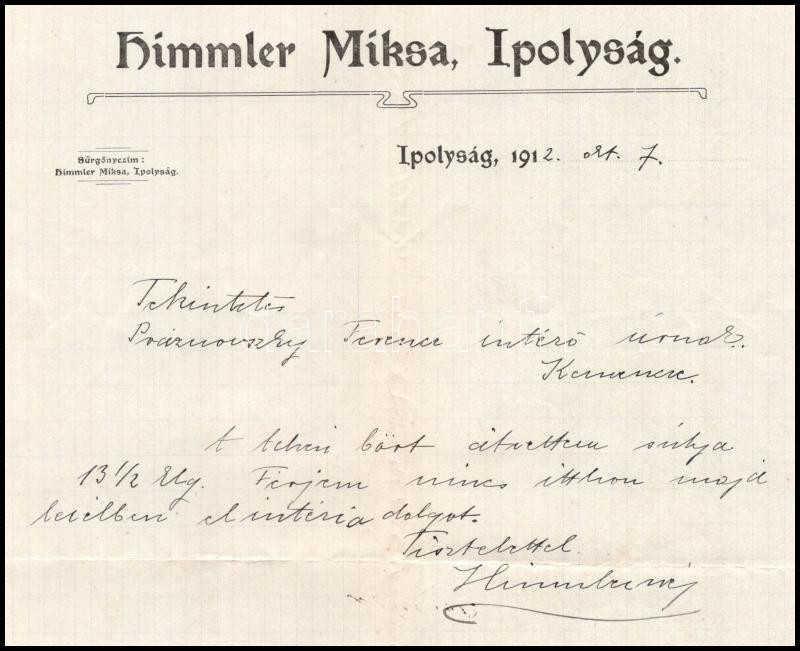 Himmler Miksa, Ipolyság.
Sürgönyczím:
Himmler Miksa, Ipolyság.
Ipolyság, 1912. okt. 7.
Tekintetes
Práznovszky Ferenc intéző úrnak.
Kemence.
A tehén bőrt átvettem súlya
13 1/2 Klg. Férjem nincs itthon majd
levélben elintézia dolgot.
Tisztelettel
Himmlerné